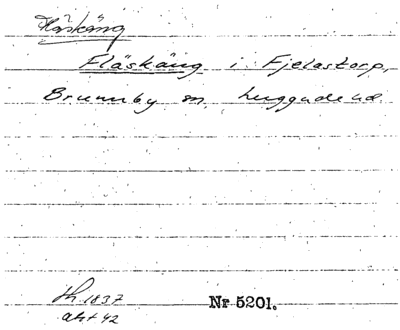 Fläskäng
Fläskäng i Fjelastorp,
Brunnby sn, Luggude hd.
Lh 1837
akt 42
Nr 5201.